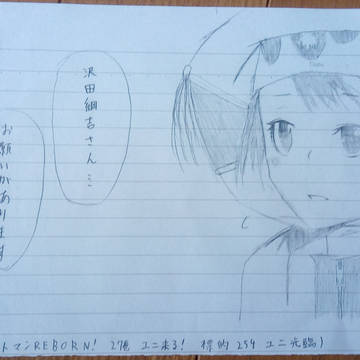 沢田綱吉さん…
お願いがあります
トマンREBORN! 27巻 ユニ来る! 標的254 ユニ光臨)